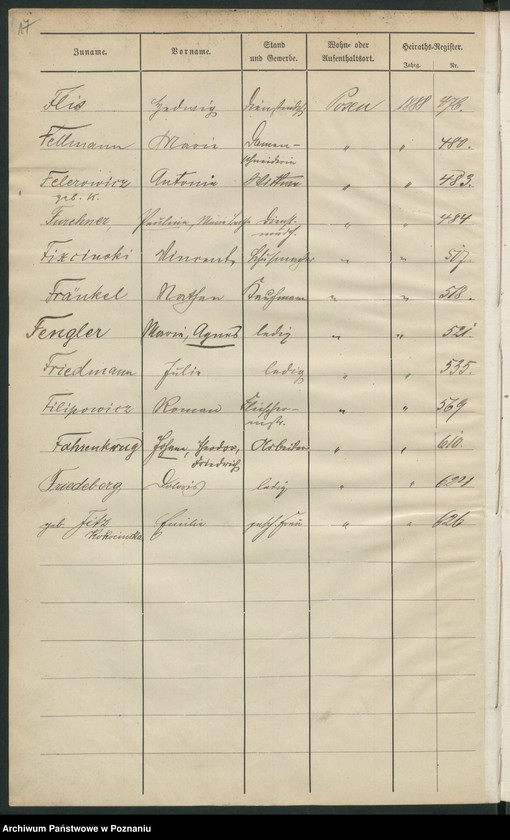 17
Zuname. Vorname. Stand und Gewerbe. Wohn- oder Aufenthaltsort. Heiraths-Register.
Jahrg. Nr.
Flis Hedwig Posen 1888 476.
Fellmann Marie Damen- " " 480.
schneiderin
Felerowicz Antonie " " 483.
geb. K.
Fuschner, Pauline, Dienst- " " 484
mädch.
Fixcinski Vincent Schuhmacher " " 507.
Fränkel Nathan Kaufmann " " 518.
Fengler Marie, Agnes ledig " " 521.
Friedmann Julie ledig " " 535.
Filipowicz Roman Fleischer- " " 569
mstr.
Fahrenkrug Johann, Theodor, Arbeiter " " 610.
Friedrich
Friedeberg Doloris ledig " " 621
geb. Fitz Emilie gesch. Frau " " 626
Archiwum Państwowe w Poznaniu